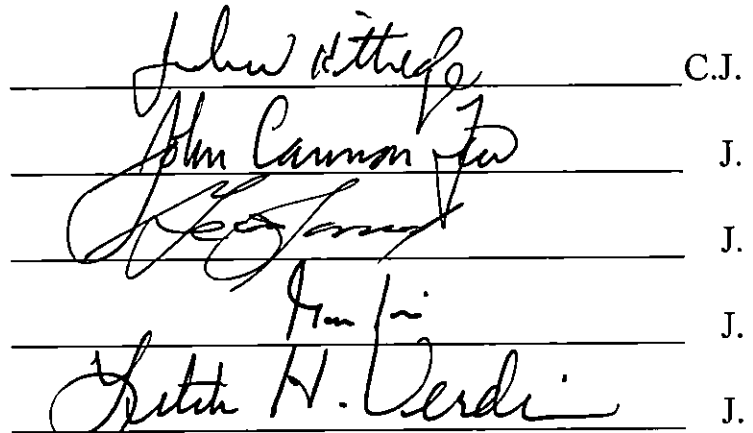 John Kittredge C.J.
John Cannon Few J.
J.
J.
Letitia H. Verdin J.